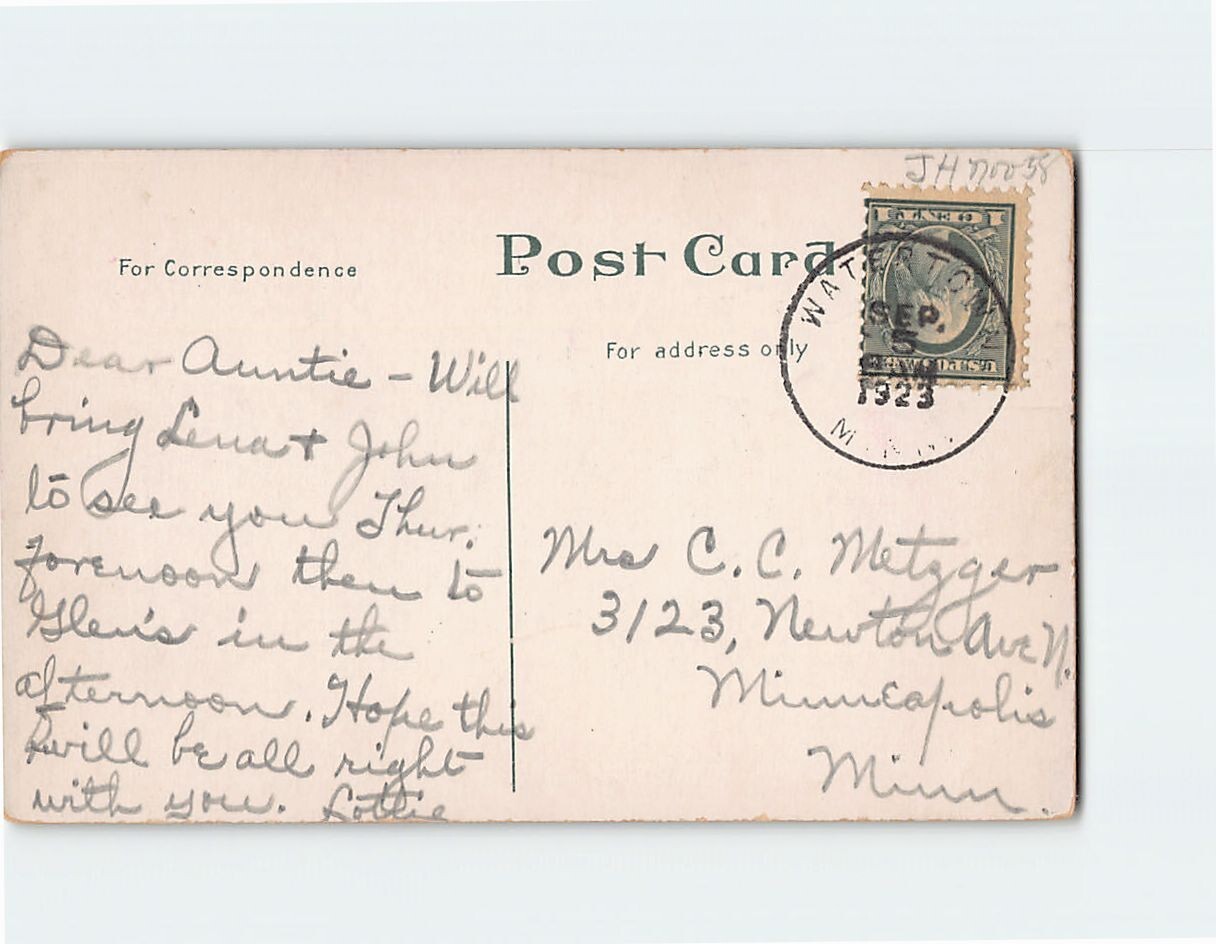 JH
Post Card
For Correspondence
For address only
WATERTOWN
SEP.
5
1923
MINN.
Dear Auntie – Will
bring Lena + John
to see you Thur.
forenoon then to
Glen's in the
afternoon. Hope this
will be all right
with you. Lottie
Mrs C. C. Metzger
3123, Newton Ave N.
Minneapolis
Minn.